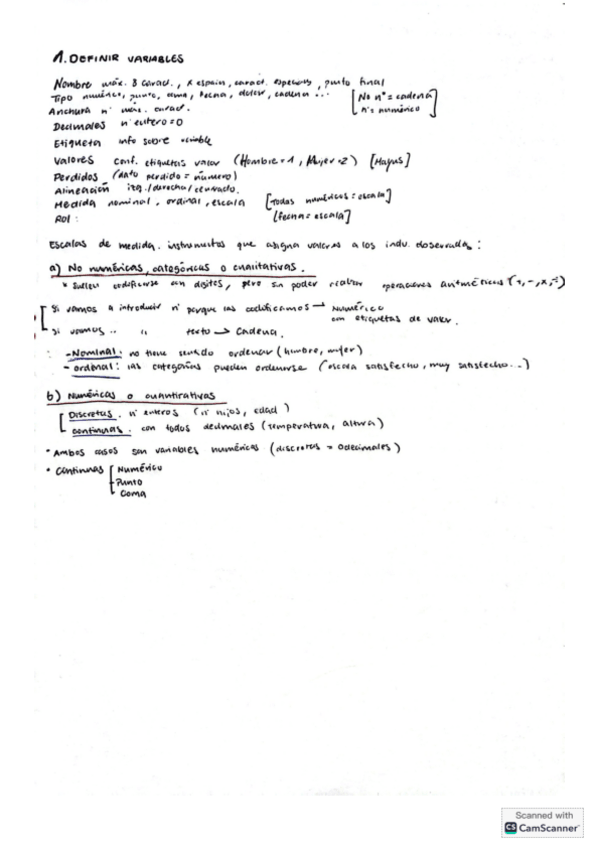 1. DEFINIR VARIABLES
Nombre máx. 8 caract., x espacio, caract. especiales, punto final
Tipo numérico, punto, coma, fecha, dolar, cadena ... [No nº = cadena
Anchura nº máx. caract. nº = numérico]
Decimales nº entero = 0
Etiqueta info sobre variable
Valores conf. etiquetas valor (Hombre = 1, Mujer = 2) [Mayus]
Perdidos (dato perdido = número)
Alineación izq./derecha/centrado.
Medida nominal, ordinal, escala [todas numéricas = escala]
Rol: [fecha = escala]
Escalas de medida. instrumentos que asigna valores a los indiv. observados:
a) No numéricas, categóricas o cualitativas.
* Suelen codificarse con dígitos, pero sin poder realizar operaciones aritméticas (+, -, x, ÷)
[Si vamos a introducir nº porque las codificamos → Numérico
con etiquetas de valor.
Si vamos .. " texto → Cadena.
- Nominal: no tiene sentido ordenar (hombre, mujer)
- ordinal: las categorías pueden ordenarse (escala satisfecho, muy satisfecho...)
b) Numéricas o cuantitativas
[Discretas. nº enteros (nº hijos, edad)
continuas. con todos decimales (temperatura, altura)
• Ambos casos son variables numéricas (discretas = 0 decimales)
• Continuas [Numérico
Punto
Coma
Scanned with
CS CamScanner